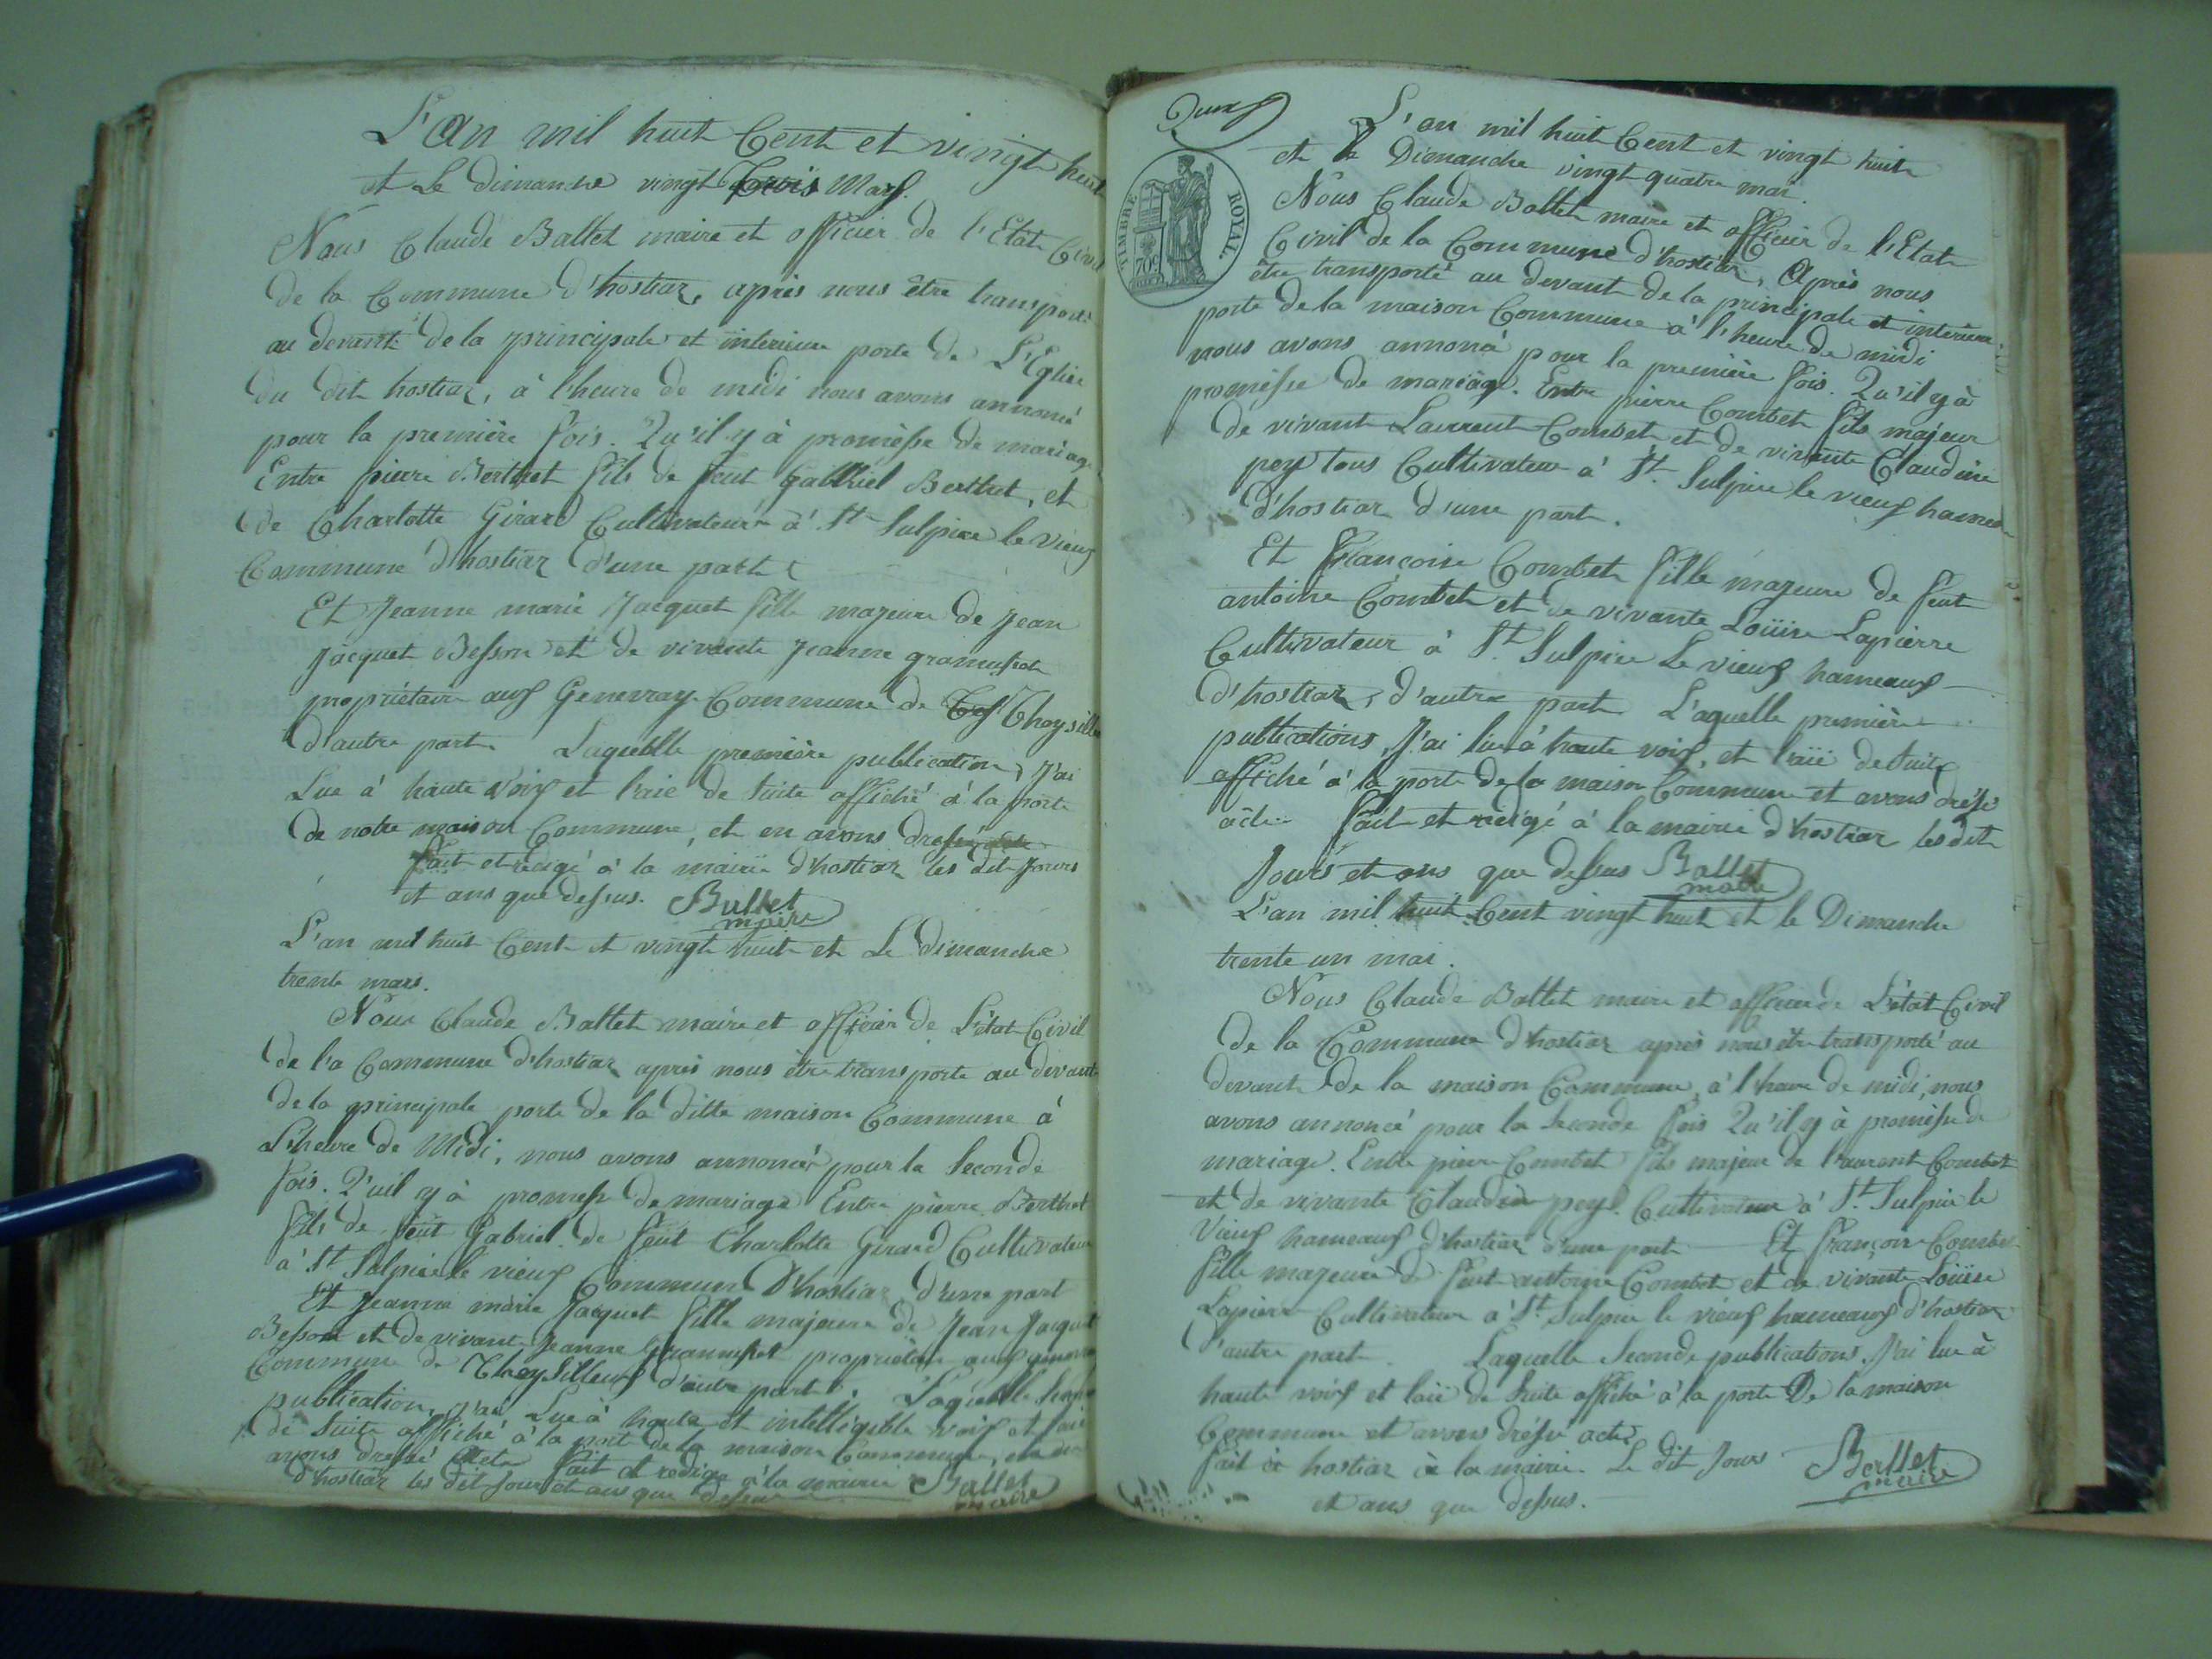 L'an mil huit Cent et vingt huit
et Le dimanche vingt trois Mars.
Nous Claude Ballet maire et officier de l'Etat Civil
de la Commune d'hostiaz, après nous être transporté
au devant de la principale et intérieure porte de L'Eglise
du dit hostiaz, à l'heure de midi nous avons annoncé
pour la première fois. Qu'il y à promesse de mariage
Entre pierre Berthet fils de feut gabriel Berthet, et
de Charlotte Girard Cultivateur à St Sulpice le vieux
Commune d'hostiaz d'une part
Et Jeanne marie Jacquet fille majeure de Jean
Jacquet Besson et de vivante Jeanne gramusset
propriétaire aux Genevray Commune de Thoysille
d'autre part. Laquelle première publication, J'ai
Lue à haute voix et l'aie de suite affiché à la porte
de notre maison Commune, et en avons dressé acte
fait et rédigé à la mairie d'hostiaz les dit Jours
et ans que dessus. Ballet
maire
L'an mil huit Cent et vingt huit et Le dimanche
trente mars.
Nous Claude Ballet maire et officier de L'état Civil
de la Commune d'hostiaz après nous être transporte au devant
de la principale porte de la ditte maison Commune à
L'heure de Midi, nous avons annoncés pour la Seconde
fois. Q'uil y à promesse de mariage Entre pierre Berthet
fils de feut Gabriel de feut Charlotte Girard Cultivateur
à St Sulpice le vieux Commune d'hostiaz d'une part
Et Jeanne marie Jacquet fille majeure de Jean Jacquet
Besson et de vivante Jeanne Gramusset propriétaire aux
Commune de Thoysilleux d'autre part. Laquelle
publication, j'ai Lue à haute et intelligible voix et l'ai
de suite affiché à la porte de la maison Commune, et en
avons dressé Acte fait et rédigé à la mairie Ballet
d'hostiaz les dit Jour et ans que dessus maire
TIMBRE ROYAL
70c
L'an mil huit Cent et vingt huit
et le Dimanche vingt quatre mai.
Nous Claude Ballet maire et officier de l'Etat
Civil de la Commune d'hostiaz, Après nous
être transporté au devant de la principale et intérieure
porte de la maison Commune à l'heure de midi
nous avons annoncé pour la première fois. Qu'il y à
promesse de mariage. Entre pierre Combet fils majeur
de vivant Laurent Combet et de vivante Claudine
pey tous Cultivateur à St. Sulpice le vieux hameau
d'hostiaz d'une part.
Et françoise Combet fille majeure de feut
antoine Combet et de vivante Loüise Lapierre
Cultivateur à St. Sulpice Le vieux hameaux
d'hostiaz, d'autre part. L'aquelle première
publications, J'ai lue à haute voix, et l'aii de suite
affiché à la porte de la maison Commune et avons dréssé
acte. fait et rédigé à la mairie d'hostiaz les dit
Jours et ans que dessus Ballet
maire
L'an mil huit Cent vingt huit et le Dimanche
trente un mai.
Nous Claude Ballet maire et officier de L'état Civil
de la Commune d'hostiaz après nous être transporté au
devant de la maison Commune, à l'heure de midi, nous
avons annoncé pour la seconde fois Qu'il y à promesse de
mariage. Entre pierre Combet fils majeur de Laurent Combet
et de vivante Claudin pey. Cultivateur à St. Sulpice le
Vieux hameaux d'hostiaz d'une part Et françoise Combet
fille majeure de feut antoine Combet et de vivante Loüise
Lapierre Cultivateur à St. Sulpice le vieux hameaux d'hostiaz
d'autre part. Laquelle seconde publications. J'ai lue à
haute voix et l'aii de suite affiché à la porte De la maison
Commune et avons dréssé acte
fait à hostiaz à la mairie. Le dit Jours Ballet
et ans que dessus. maire